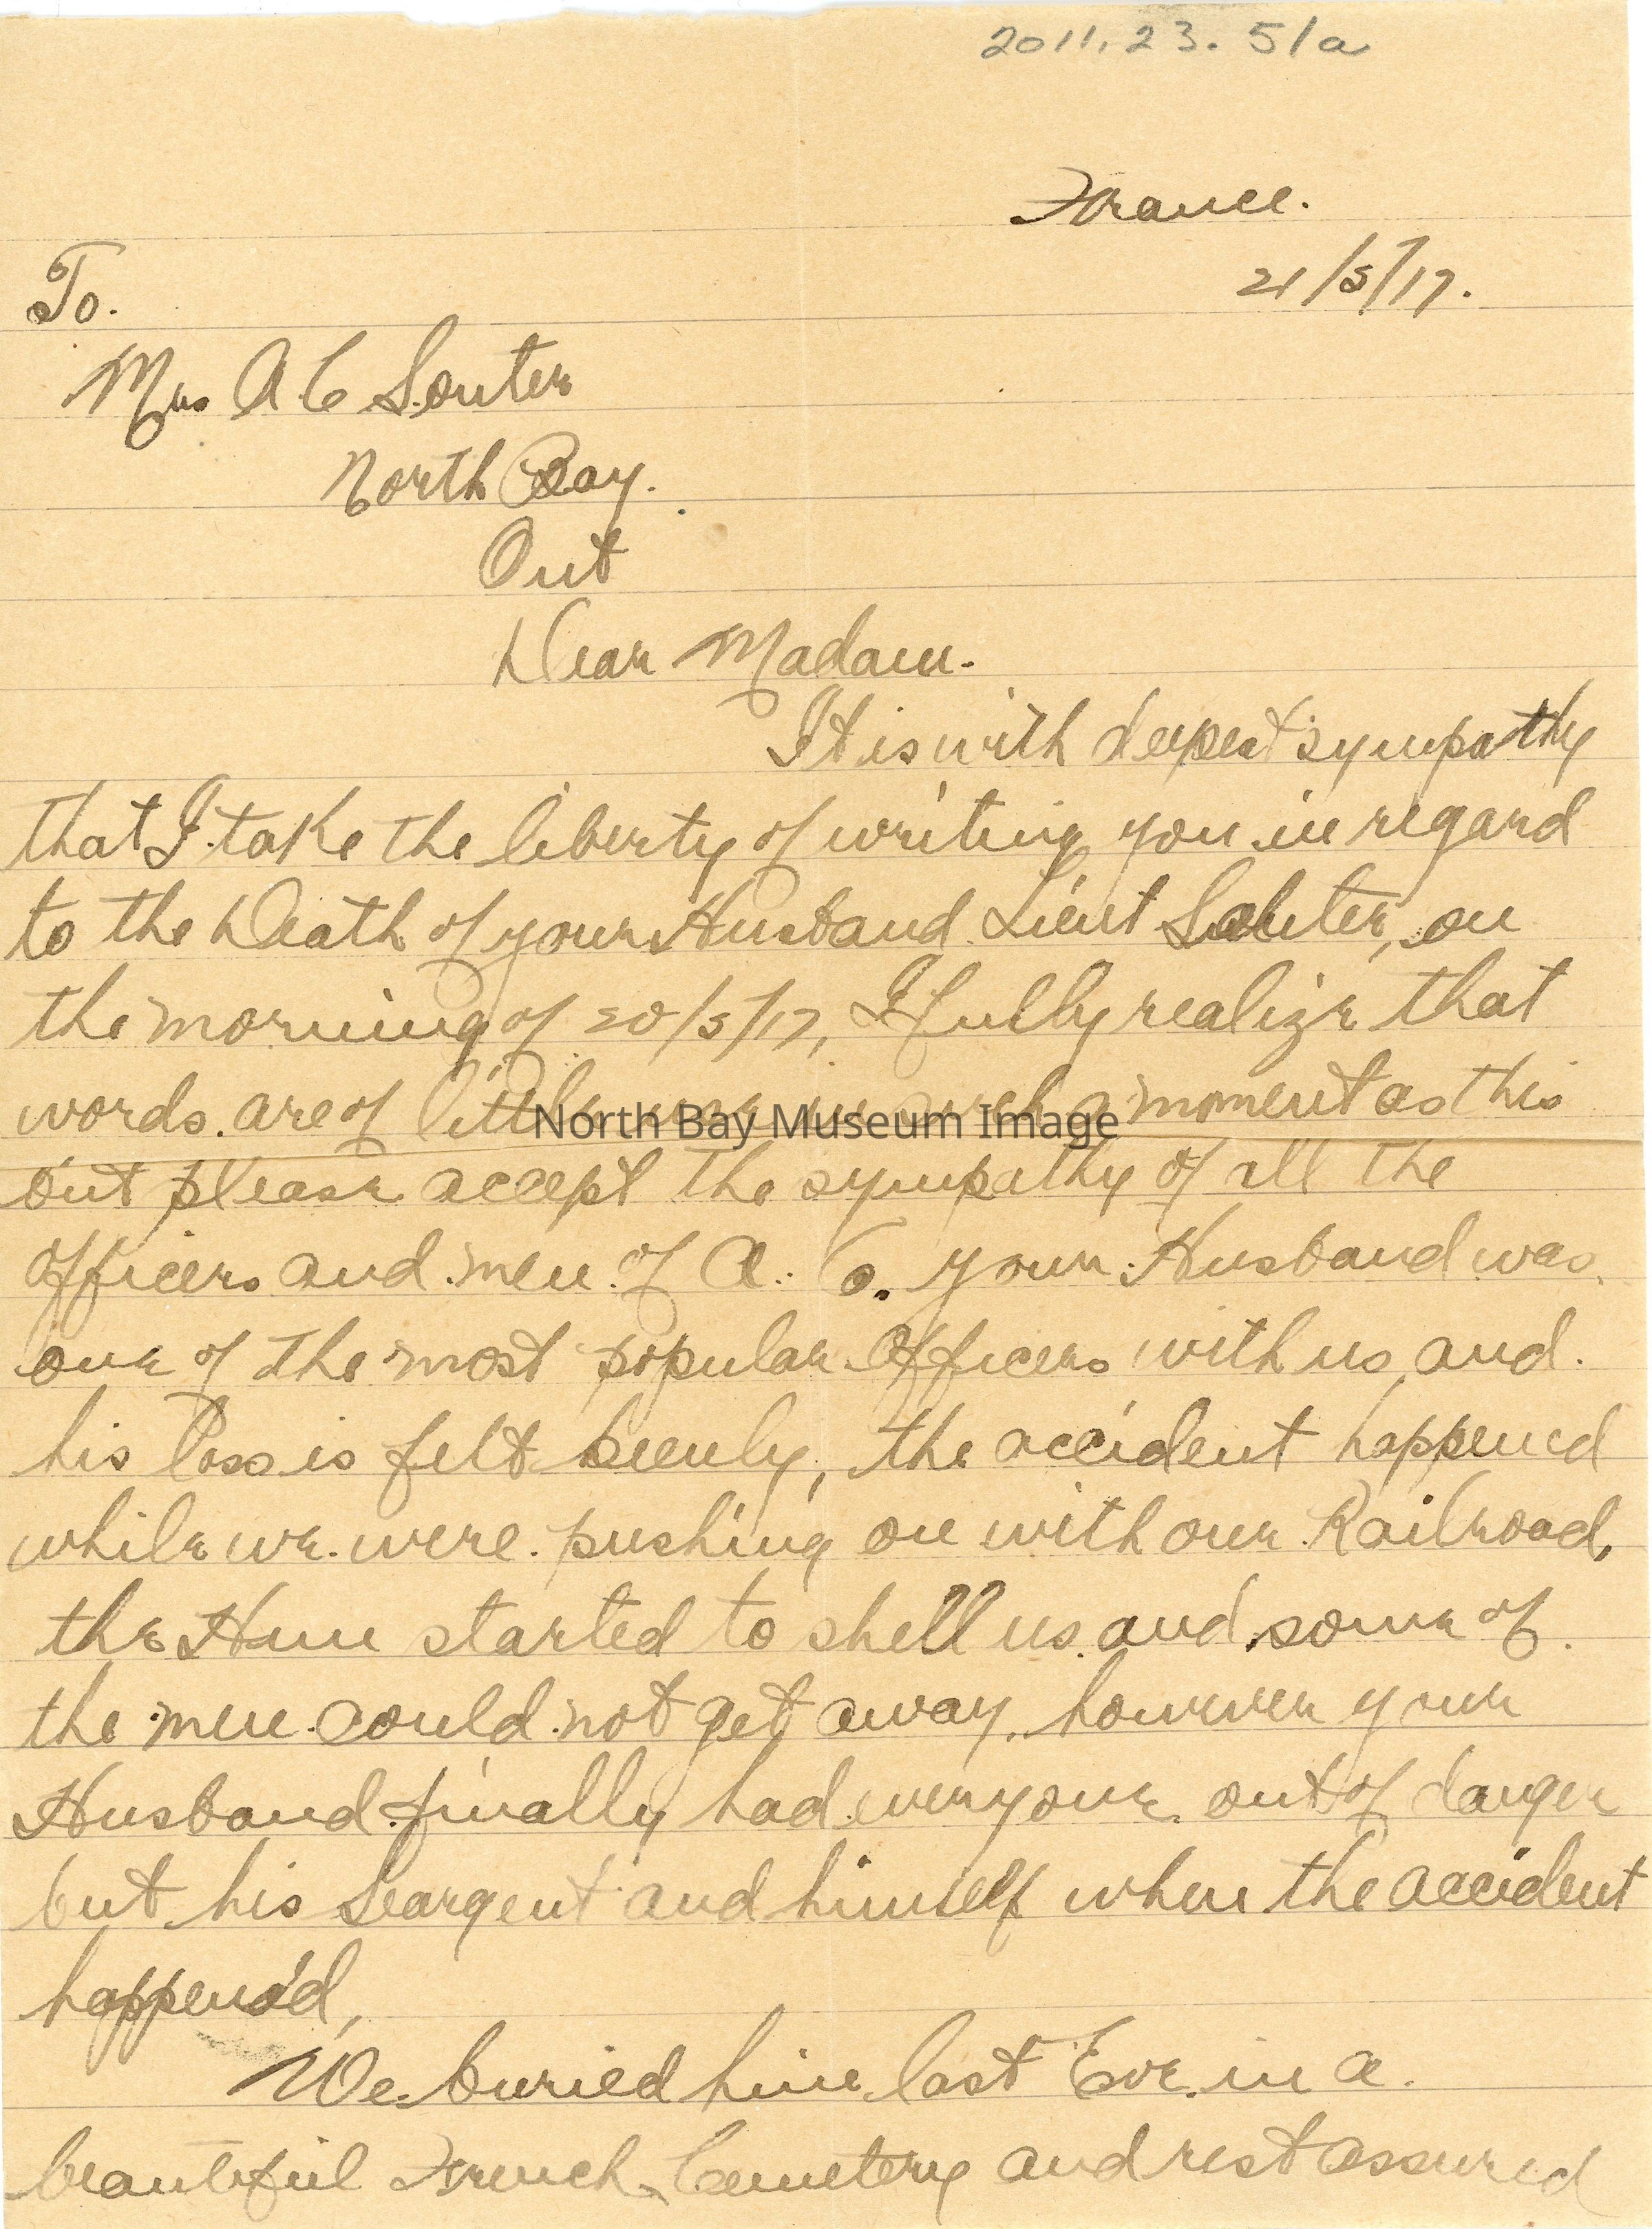 2011.23.51a
France.
21/5/17.
To.
Mrs A C Souter
North Bay.
Ont
Dear Madam.
It is with deepest sympathy
that I take the liberty of writing you in regard
to the Death of your Husband Lieut Souter, on
the morning of 20/5/17, I fully realize that
words are of little in such a moment as this
North Bay Museum Image
but please accept the sympathy of all the
officers and men of A. Co. your Husband was
one of the most popular Officers with us and
his loss is felt keenly, the accident happened
while we were pushing on with our Railroad,
the Hun started to shell us and some of
the men could not get away however your
Husband finally had everyone out of danger
but his Seargent and himself when the accident
happened,
We buried him last Eve in a
beautiful French Cemetery and rest assured